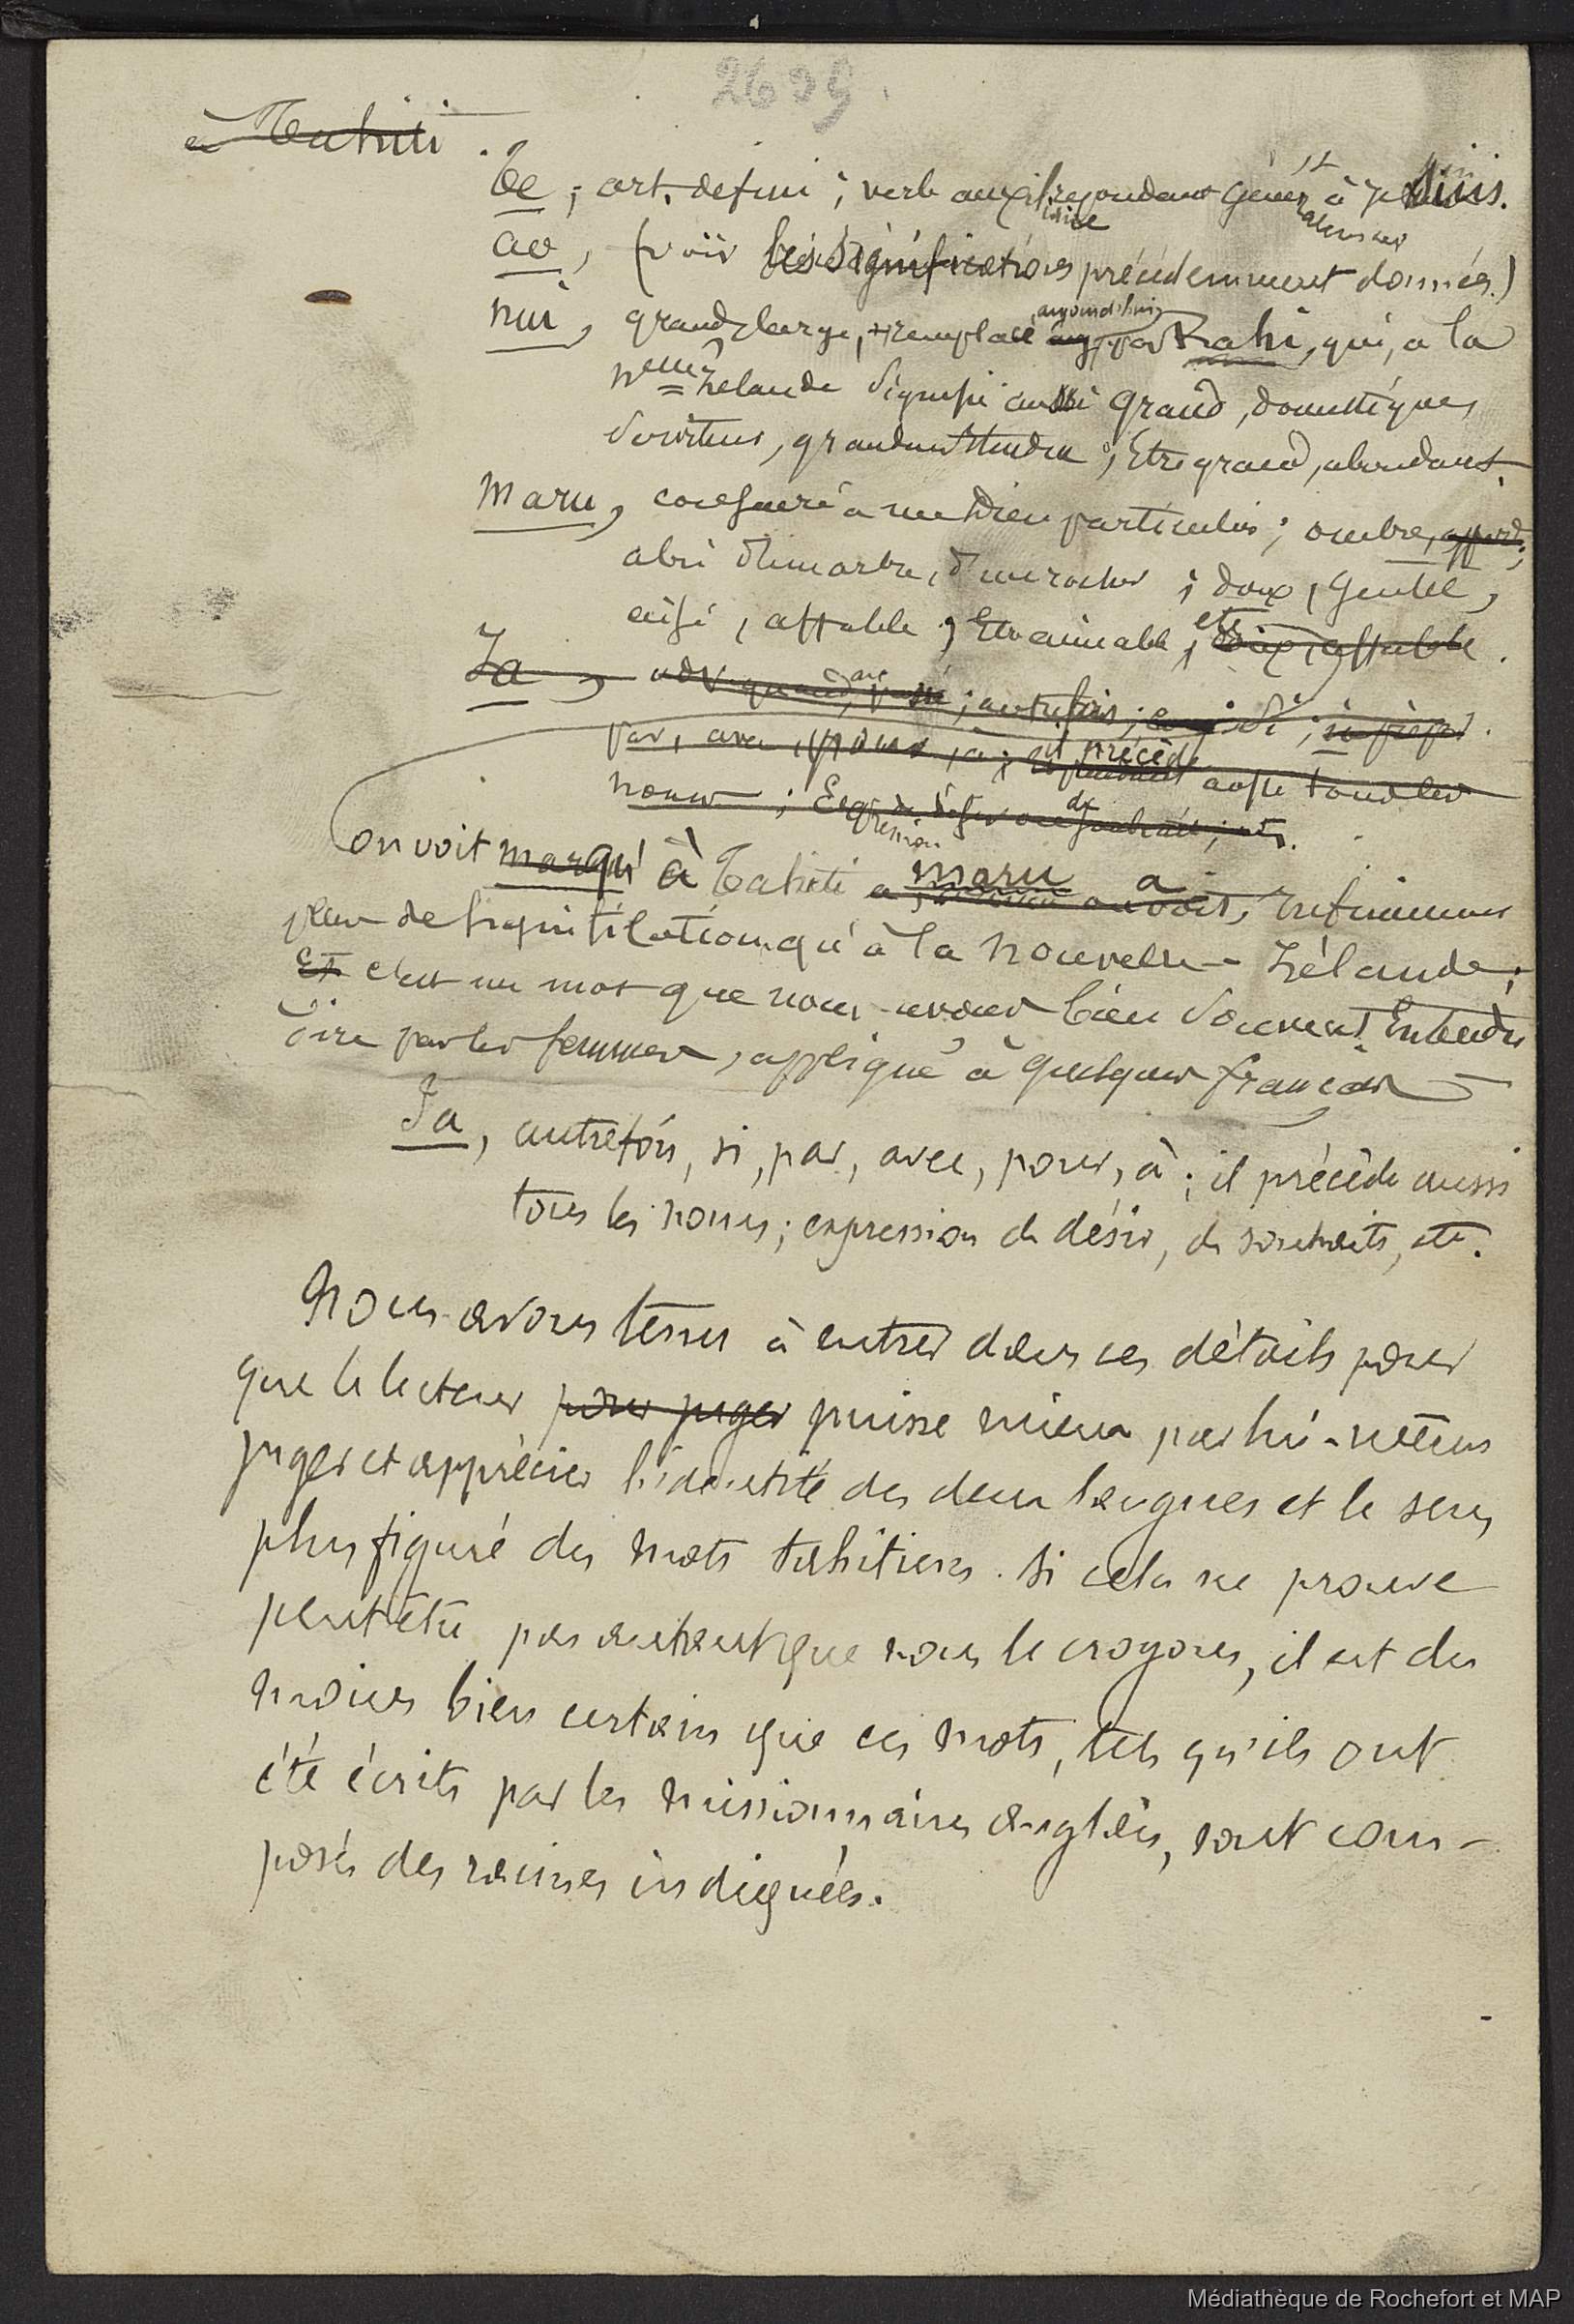 2699.
à Tahiti.
Te, art. défini ; verbe auxiliaire répondant génért à je suis.
ao, (voir les significations précédemment données.)
nui, grand, large, remplacé aujourd'hui par rahi, qui, a la
Nelle Zelande signifie aussi grand, domestiques
grandeur étendue ; Etre grand, abondant.
Maru, consacré a un Dieu particulier ; ombre,
abri d'un arbre, d'un rocher ; doux, gentil,
aisé, affable, Etre aimable, etc doux, affable.
Ia, adv. quand, ; autrefois ; si ;
par, avec, pour, à ; il précède aussi tous les
noms ; Expression de désir ou de souhait, etc.
on voit marqui à Tahiti a maru a on voit, infiniment
plus de signification qu'à la Nouvelle-Zélande ;
Et c'est un mot que nous avons bien souvent Entendu
dire par les femmes, appliqué à quelques français
Ia, autrefois, si, par, avec, pour, à ; il précède aussi
tous les noms ; expression de désir, de souhaits, etc.
Nous avons tenu à entrer dans ces détails pour
que le lecteur pour juger puisse mieux par lui-même
juger et apprécier l'identité des deux langues et le sens
plus figuré des mots tahitiens. Si cela ne prouve
peut être pas autant que nous le croyons, il est du
moins bien certain que ces mots, tels qu'ils ont
été écrits par les missionnaires anglais, sont com-
posés des racines indiquées.
Médiathèque de Rochefort et MAP